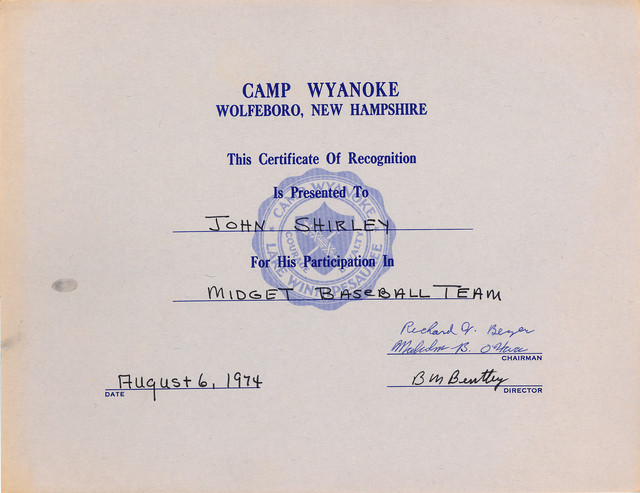 CAMP WYANOKE
WOLFEBORO, NEW HAMPSHIRE
This Certificate Of Recognition
Is Presented To
JOHN SHIRLEY
CAMP WYANOKE
COURAGE LOYALTY
LAKE WINNIPESAUKEE
For His Participation In
MIDGET BASEBALL TEAM
Richard G. Beyer
Malcolm B. O'Hara
CHAIRMAN
August 6, 1974
DATE
B M Bentley
DIRECTOR